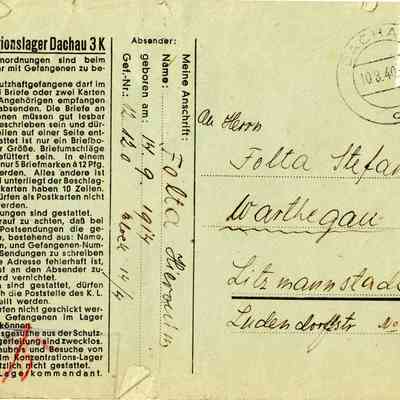 ionslager Dachau 3 K
nordnungen sind beim
r mit Gefangenen zu be-
utzhaftgefangene darf im
i Briefe oder zwei Karten
Angehörigen empfangen
absenden. Die Briefe an
enen müssen gut lesbar
beschrieben sein und dür-
eilen auf einer Seite ent-
attet ist nur ein Briefbo-
r Größe. Briefumschläge
efüttert sein. In einem
nur 5 Briefmarken à 12 Pfg.
werden. Alles andere ist
d unterliegt der Beschlag-
karten haben 10 Zeilen.
dürfen als Postkarten nicht
erden.
ungen sind gestattet.
rauf zu achten, daß bei
Postsendungen die ge-
e, bestehend aus: Name,
en, und Gefangenen-Num-
Sendungen zu schreiben
e Adresse fehlerhaft ist,
st an den Absender zu-
rd vernichtet.
n sind gestattet, dürfen
ch die Poststelle des K. L.
llt werden.
rfen nicht geschickt wer-
Gefangenen im Lager
können.
sgesuche aus der Schutz-
gerleitung sind zwecklos.
aubnis und Besuche von
im Konzentrations-Lager
tzlich nicht gestattet.
Lagerkommandant.
Absender:
Meine Anschrift:
Name: Folta Hieronim
geboren am: 14. 9. 1914
Gef.-Nr.: 12120
DACHA
10.8.40
An Herrn
Folta Stefan
Warthegau
Litzmannstadt
Ludendorffstr No